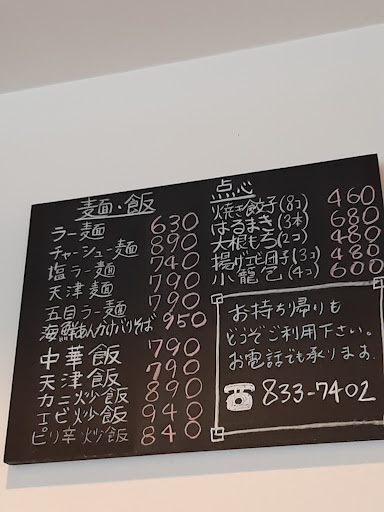 麺・飯
ラー麺 630
チャーシュー麺 890
塩ラー麺 740
天津麺 790
五目ラー麺 790
海鮮あんかけバリそば 950
中華飯 790
天津飯 790
カニ炒飯 890
エビ炒飯 940
ピリ辛炒飯 840
点心
焼き餃子(8コ) 460
はるまき(3本) 680
大根もち(2コ) 480
揚げエビ団子(3コ) 480
小籠包(4コ) 600
お持ち帰りも
どうぞご利用下さい。
お電話でも承ります
☎833-7402